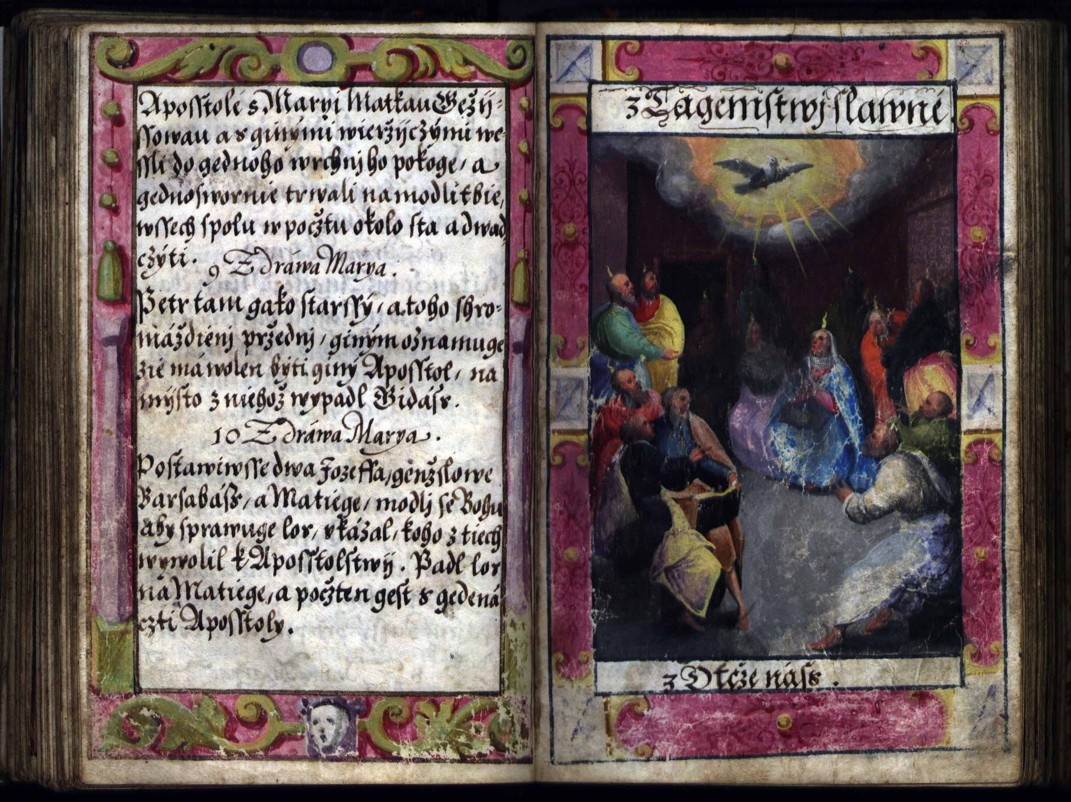 Aposstolé s Maryí Matkau Gežij-
ssowau a s ginými wieržijczými we-
ssli do gednoho wrchnijho pokoge, a
gednoswornie trwali na modlitbie,
wssech spolu w počtu okolo sta a dwad
czýti.
9 Zdráwa Marya.
Petr tam gako starssý, a toho shro-
máždienj přednj, giným oznamuge
žie má wolen býti giný Aposstol, na
mýsto z niehož wypadl Gidáss.
10 Zdráwa Marya.
Postawiwsse dwa Jozeffa, genž slowe
Barsabáss, a Matiege, modlj se Bohu
aby sprawuge lor, vkázal, koho z tiech
wywolil k Aposstolstwý. Padl lor
na Matiege, a počten gest s gedená
czti Aposstoly.
3 Tagemstwj slawné
3 Otče náss.